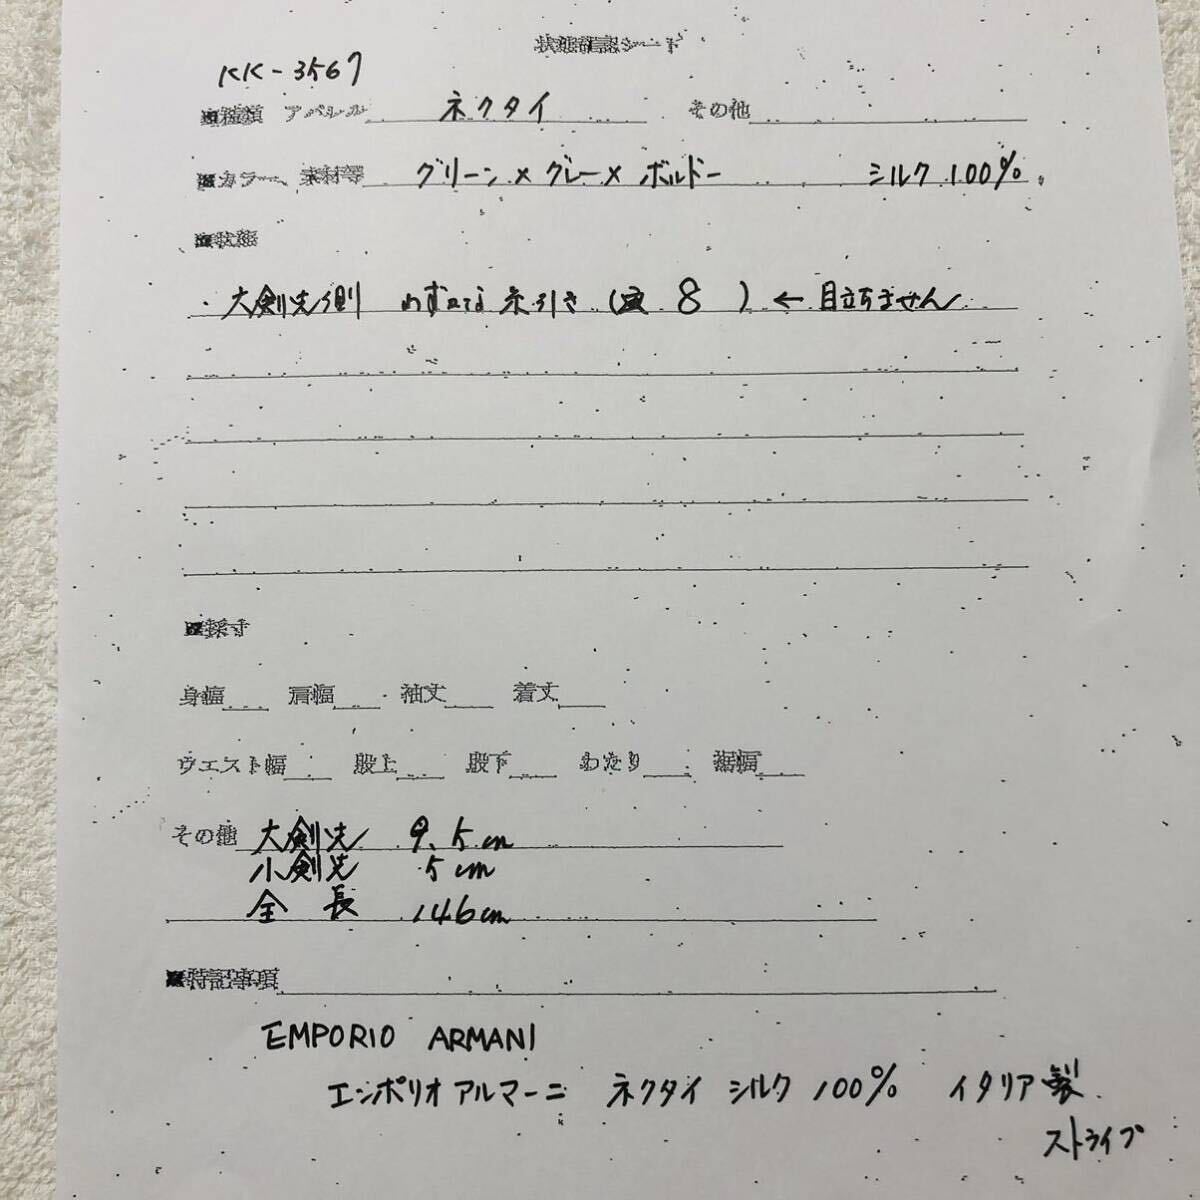 状態確認シート
KK-3567
■種類 アパレル ネクタイ その他
■カラー、素材等 グリーン×グレー×ボルドー シルク100%
■状態
・大剣先側 わずかな糸引き ( 8 ) ← 目立ちません
■採寸
身幅 肩幅 袖丈 着丈
ウエスト幅 股上 股下 わたり 裾幅
その他 大剣先 9.5cm
小剣先 5cm
全長 146cm
■特記事項
EMPORIO ARMANI
エンポリオアルマーニ ネクタイ シルク 100% イタリア製
ストライプ